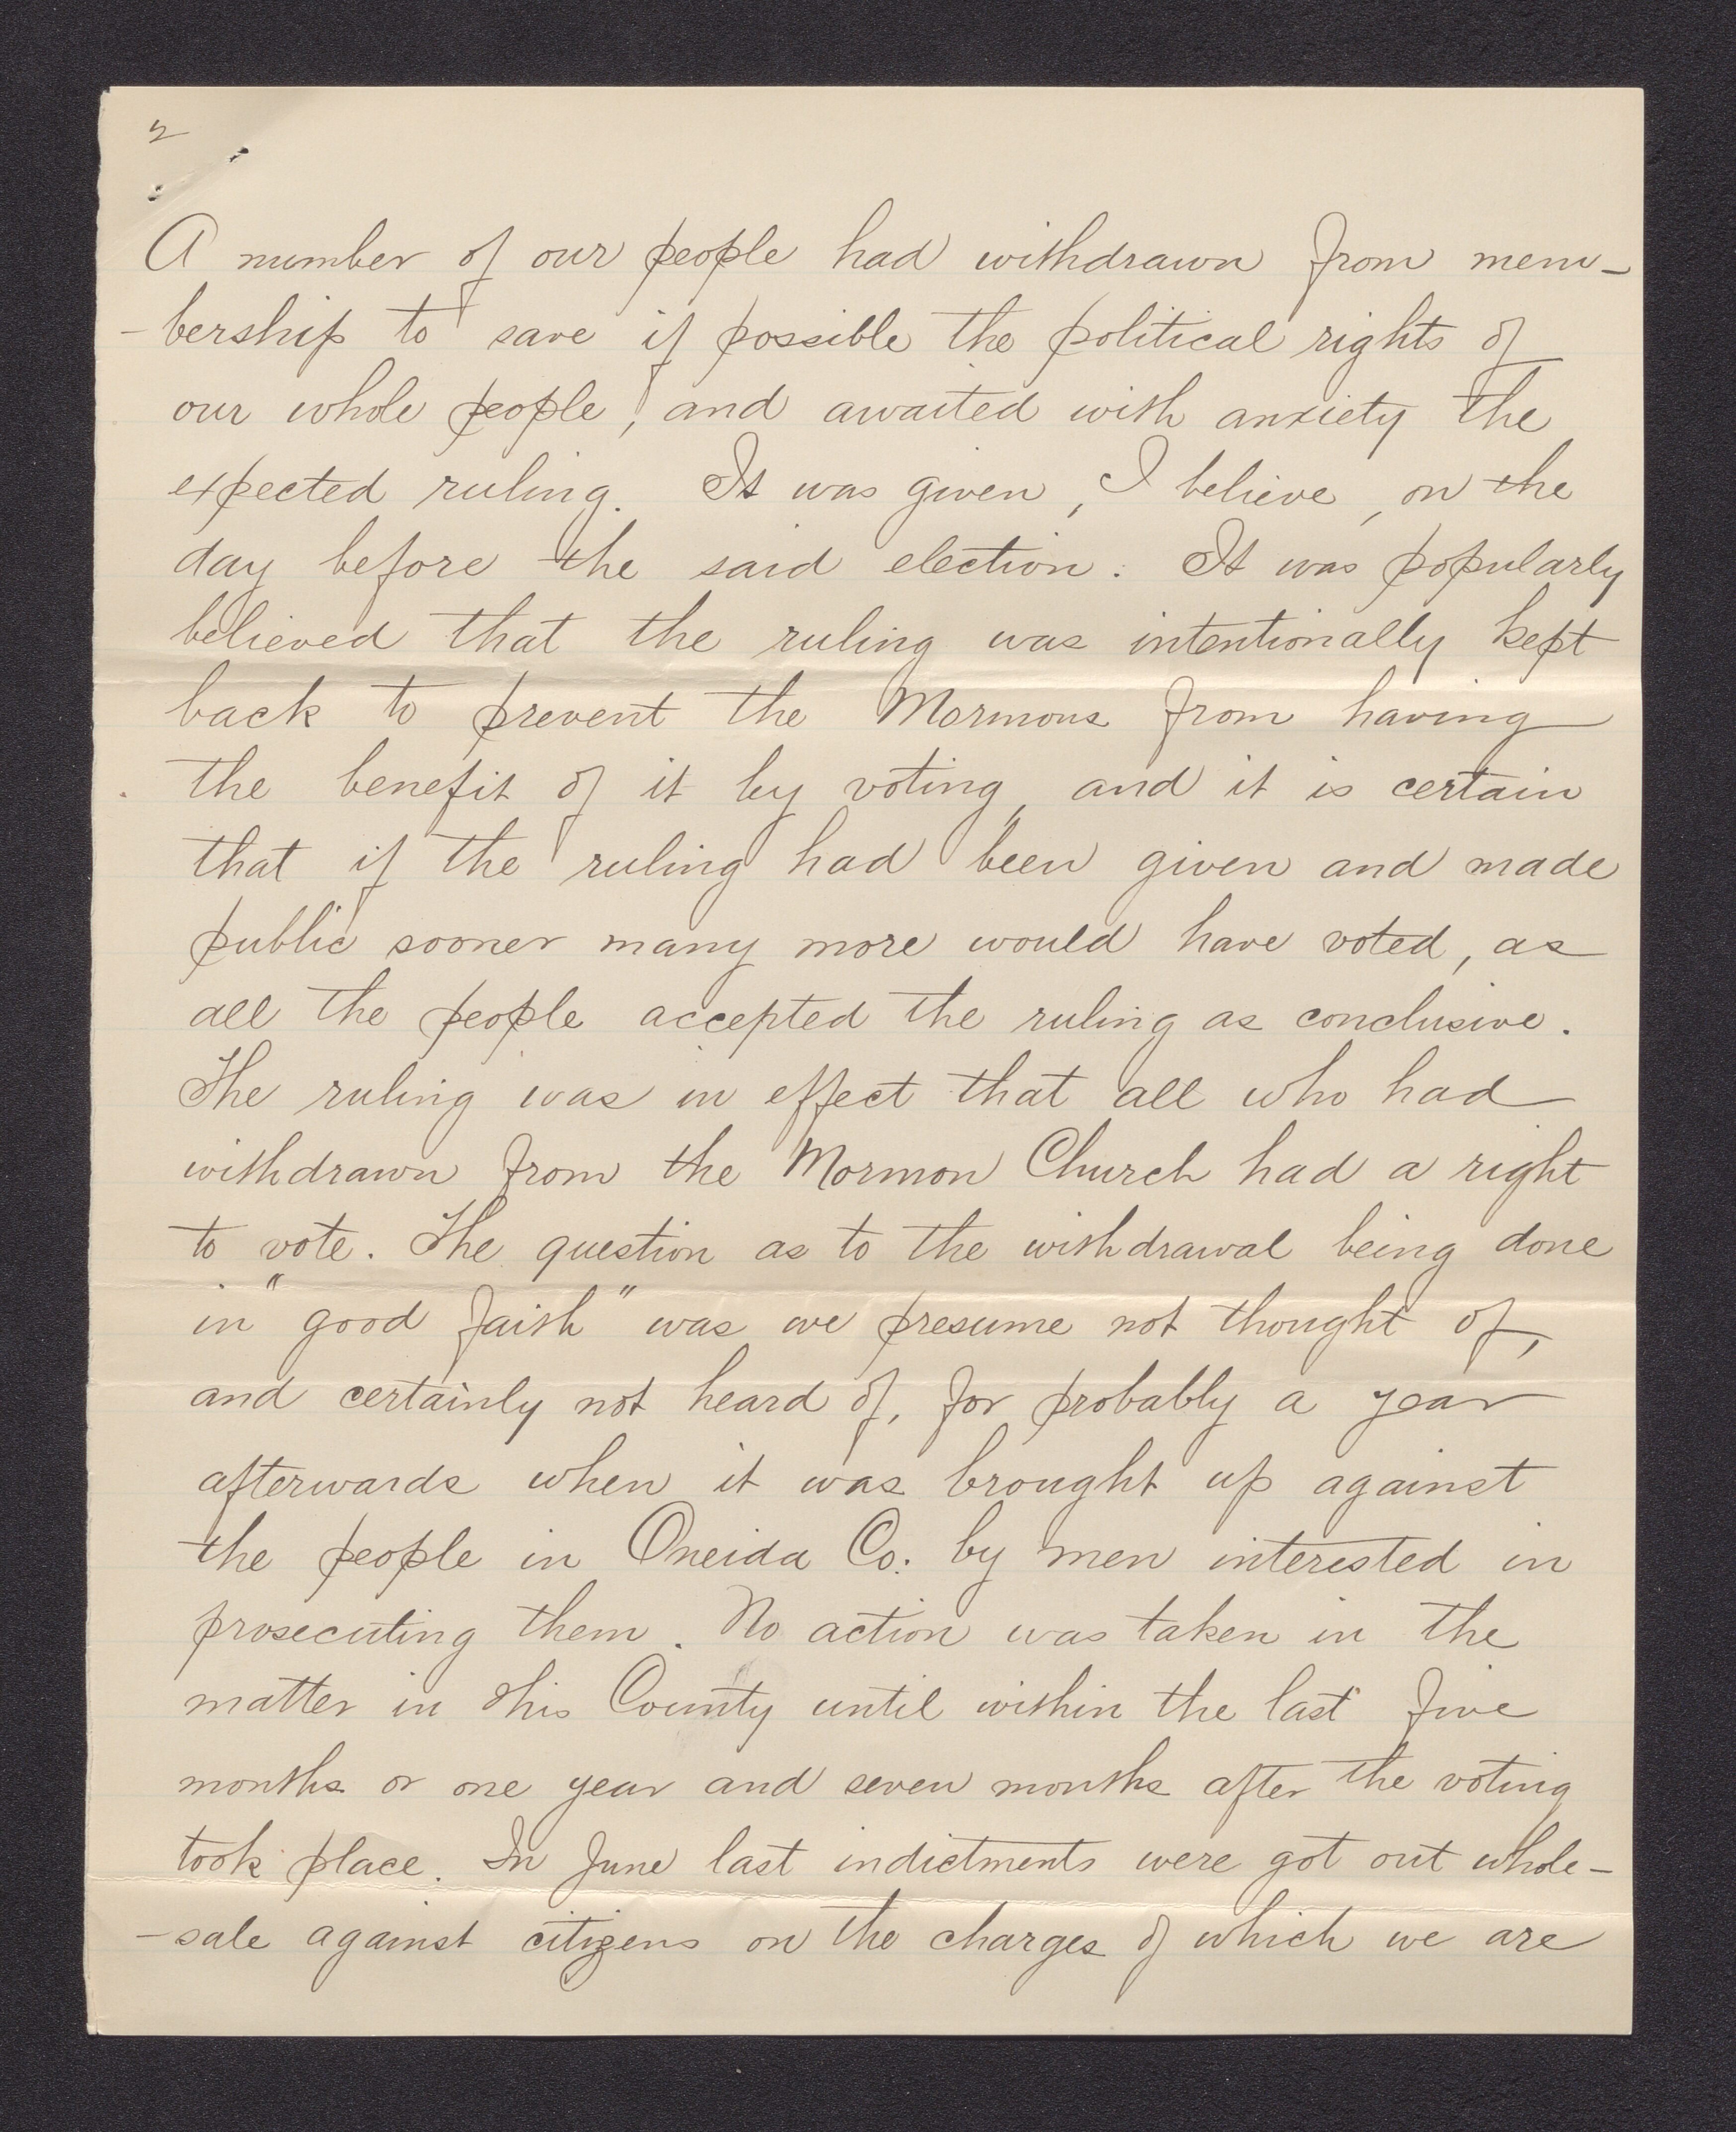 2
A number of our people had withdrawn from mem-
-bership to save if possible the political rights of
our whole people, and awaited with anxiety the
expected ruling. It was given, I believe, on the
day before the said election. It was popularly
believed that the ruling was intentionally kept
back to prevent the Mormons from having
the benefit of it by voting, and it is certain
that if the ruling had been given and made
public sooner many more would have voted, as
all the people accepted the ruling as conclusive.
The ruling was in effect that all who had
withdrawn from the Mormon Church had a right
to vote. The question as to the withdrawal being done
in "good faith" was we presume not thought of,
and certainly not heard of, for probably a year
afterwards when it was brought up against
the people in Oneida Co: by men interested in
prosecuting them. No action was taken in the
matter in this County until within the last five
months or one year and seven months after the voting
took place. In June last indictments were got out whole-
-sale against citizens on the charges of which we are